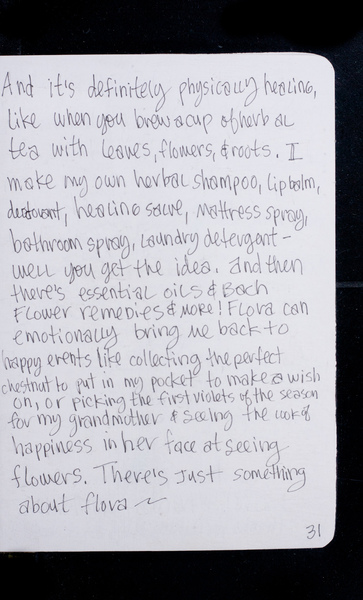 And it's definitely physically healing,
like when you brew a cup of herbal
tea with leaves, flowers, & roots. I
make my own herbal shampoo, lip balm,
deodorant, healing salve, mattress spray,
bathroom spray, laundry detergent -
well you get the idea. And then
there's essential oils & Bach
Flower remedies & more! Flora can
emotionally bring me back to
happy events like collecting the perfect
chestnut to put in my pocket to make a wish
on, or picking the first violets of the season
for my grandmother & seeing the look of
happiness in her face at seeing
flowers. There's just something
about flora ~
31